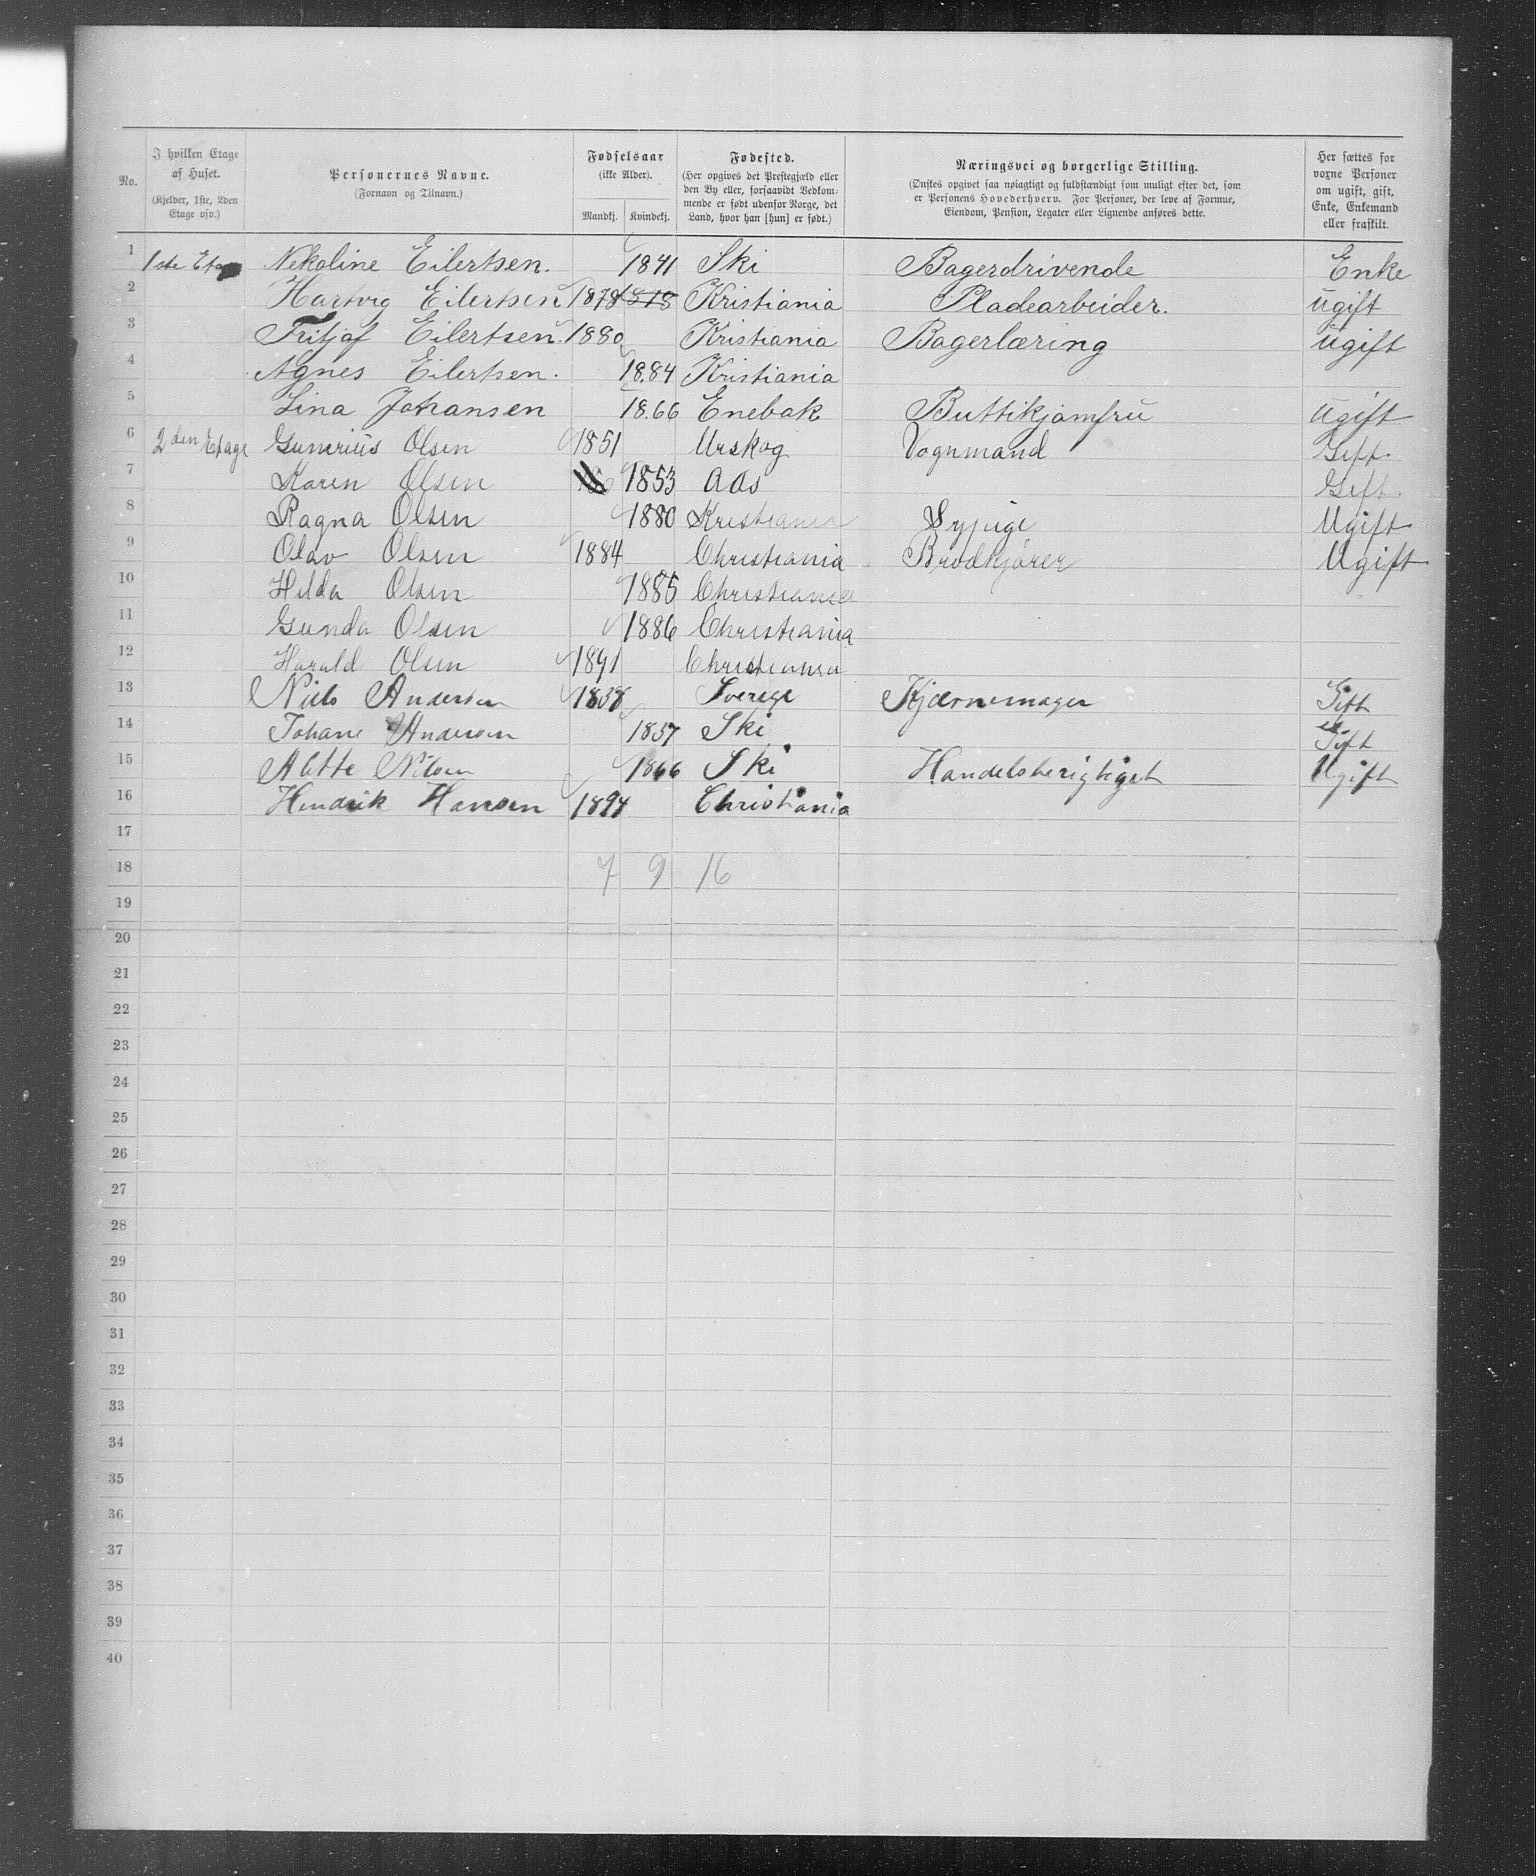 No. I hvilken Etage af Huset. (Kjelder, 1ste, 2den Etage osv.) Personernes Navne. (Fornavn og Tilnavn.) Fødselsaar (ikke Alder). Mandkj. Kvindekj. Fødested. (Her opgives det Prestegjæld eller den By eller, forsaavidt Vedkommende er født udenfor Norge, det Land, hvor han [hun] er født.) Næringsvei og borgerlige Stilling. (Ønskes opgivet saa nøiagtigt og fuldstændigt som muligt efter det, som er Personens Hovederhverv. For Personer, der leve af Formue, Eiendom, Pension, Legater eller Lignende anføres dette. Her sættes for voxne Personer om ugift, gift, Enke, Enkemand eller fraskilt.
1 1ste Etage Nekoline Eilertsen. 1841 Ski Bagerdrivende Enke
2 Hartvig Eilertsen 1878 Kristiania Pladearbeider. ugift
3 Fritjof Eilertsen. 1880 Kristiania Bagerlæring ugift
4 Agnes Eilertsen. 1884 Kristiania
5 Lina Johansen 1866 Enebak Buttikjomfru ugift
6 2den Etage Gunerius Olsen 1851 Urskog Vognmand Gift.
7 Karen Olsen 1853 Aas Gift.
8 Ragna Olsen 1880 Kristiania Sypige Ugift
9 Olav Olsen 1884 Christiania Brødkjører Ugift
10 Hilda Olsen 1885 Christiania
11 Gunda Olsen 1886 Christiania
12 Harald Olsen 1891 Christiania
13 Nils Andersen 1838 Sverige Kjærnemager Gift
14 Johane Andersen 1857 Ski Gift
15 Alette Nilsen 1866 Ski Handelsberigtiget Ugift
16 Hendrik Hansen 1894 Christiania
17
18 7 9 16
19
20
21
22
23
24
25
26
27
28
29
30
31
32
33
34
35
36
37
38
39
40